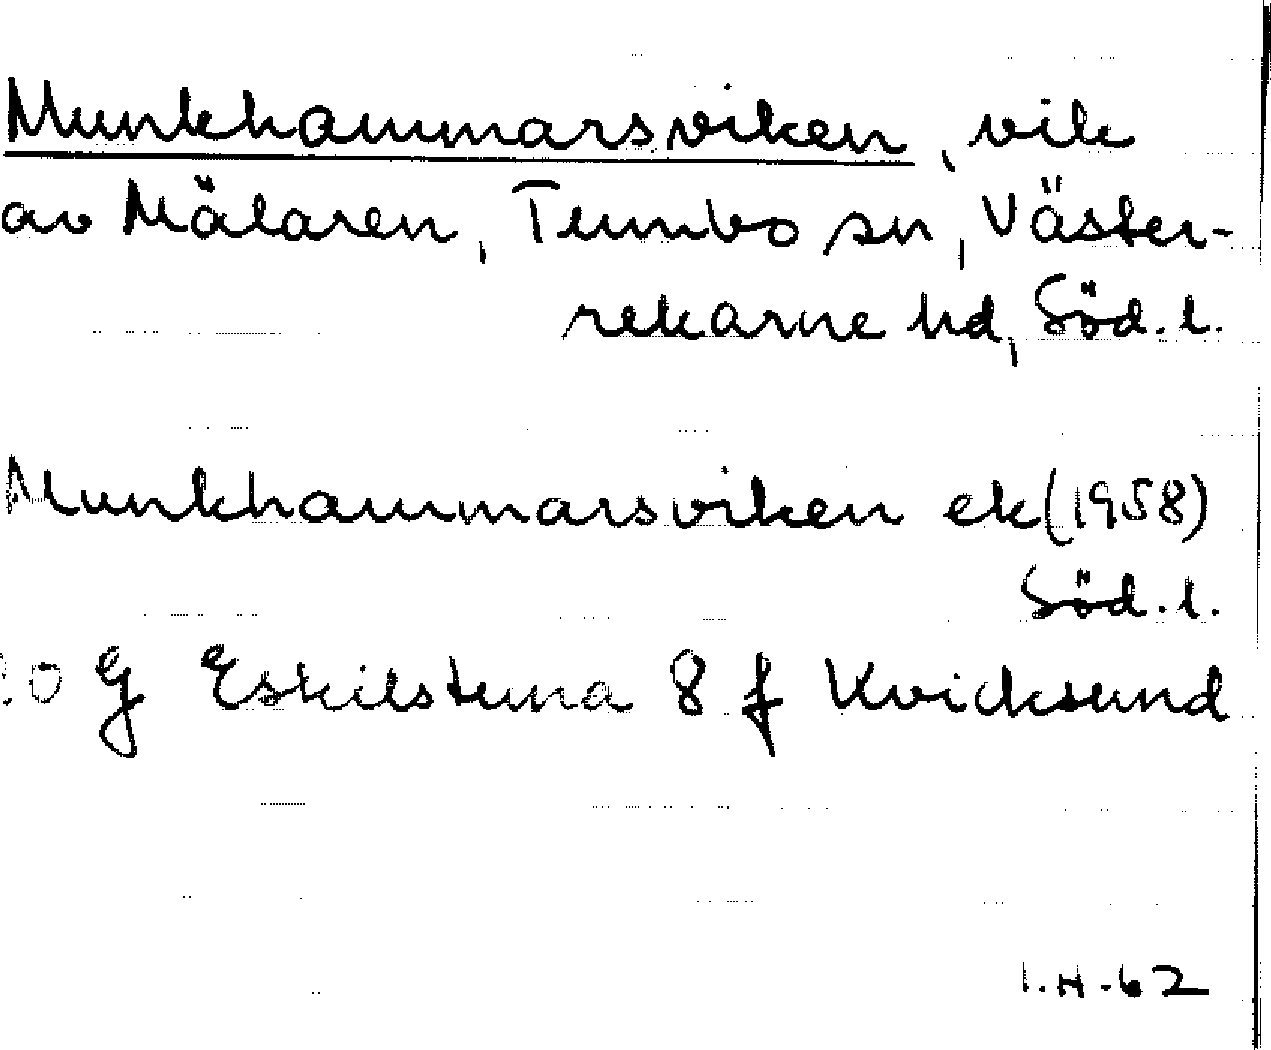 Munkhammarsviken, vik
av Mälaren, Tumbo sn, Väster-
rekarne hd, Söd. l.
Munkhammarsviken ek (1958)
Söd. l.
10 G Eskilstuna 8 f Kvicksund
I.H-62